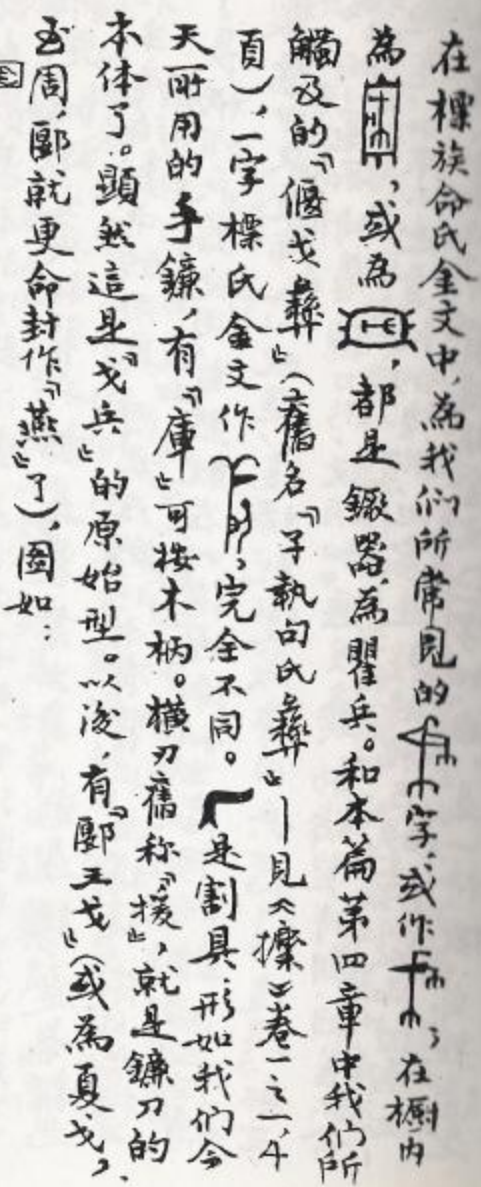 在標族命氏金文中，為我們所常見的字；或作，在櫥内
為，或為，都是钁器，為瞿兵。和本篇第四章中我們所
觸及的『偃戈彝』（舊名『子執句氏彝』—見《攈》卷一之一，4
頁），一字標氏金文作，完全不同。是割具，形如我們今
天所用的手鐮，有『庫』可按木柄。横刃舊称『援』，就是鐮刀的
本体了。顯然這是『戈兵』的原始型。以後，有『郾王戈』（或為夏戈，
至周，郾就更命封作『燕』了），圖如：